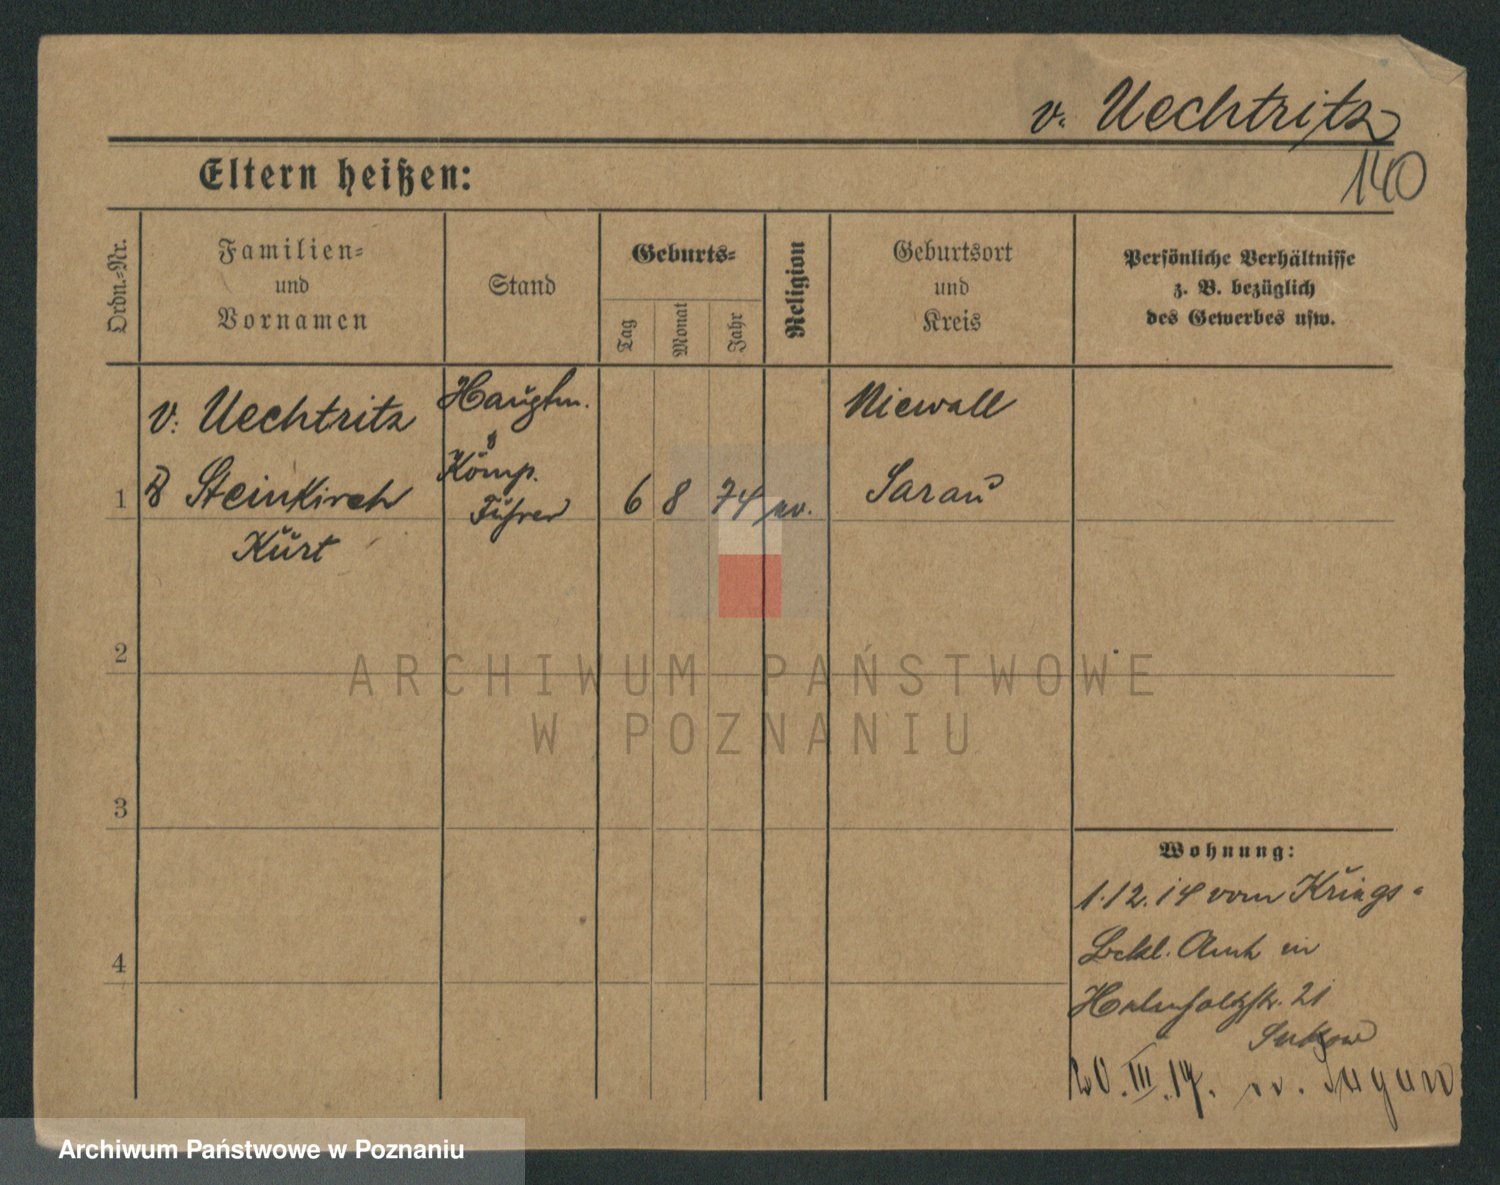 v. Uechtritz
140
Eltern heißen:
Ordn.-Nr.
Familien-
und
Vornamen
Stand
Geburts-
Tag
Monat
Jahr
Religion
Geburtsort
und
Kreis
Persönliche Verhältnisse
z. B. bezüglich
des Gewerbes usw.
v. Uechtritz
Steinkirch
Kurt
Hauptm.
Komp.
Führer
1
6 8 74 ev.
Niewall
Sarau
2
3
4
Wohnung:
1.12.14 vom Kriegs-
Bekl. Amt in
Helmholtzstr. 21
20.III.17. Sagan
ARCHIWUM PAŃSTWOWE
W POZNANIU
Archiwum Państwowe w Poznaniu